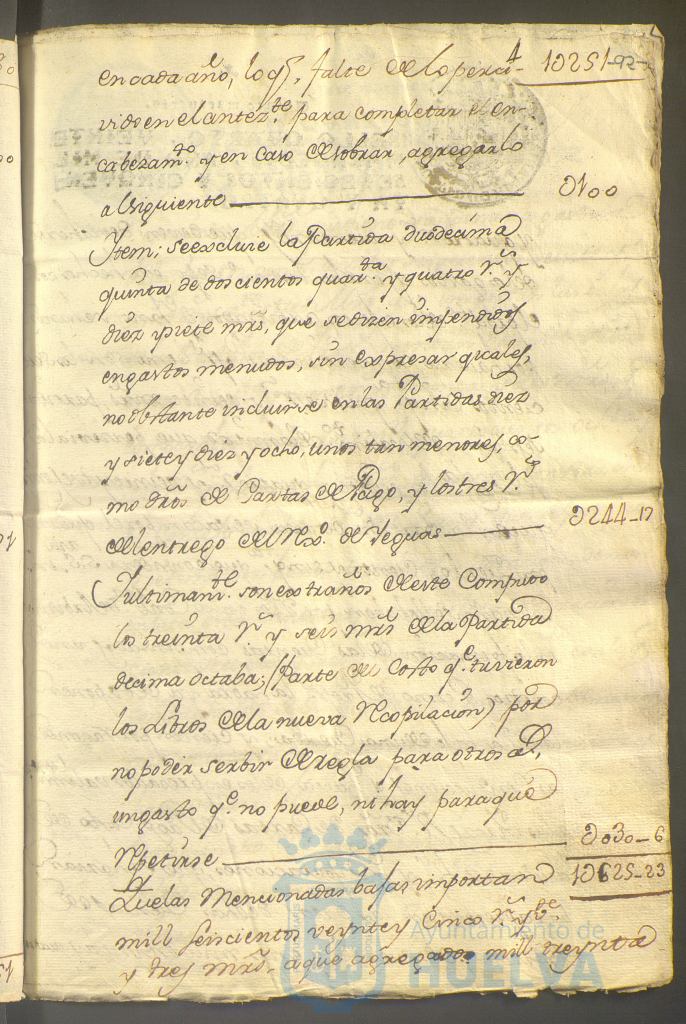 en cada año, lo q.e falte de lo perci- 1U251-92-
vido en el antez.te para completar el en-
cabezam.to y en caso de sobrar, agregarlo
al siguiente U100
Ytem; se excluie la Partida duodecima
quinta de doscientos quar.ta y quatro r.s y
diez y siete mrs, que se dizen impendidos
en gastos menudos, sin expresar quales,
no obstante incluirse en las Partidas diez
y siete y diez y ocho, unos tan menores, co-
mo dros de Cartas de Pago, y los tres r.s
del entrego del Rxo. de Yeguas U244-17
Yultimam.te son extraños de este Computo
los treinta r.s y seis mrs de la Partida
decima octaba; (Parte del Costo q.e tuvieron
los Libros de la nueva Recopilacion) por
no poder serbir de regla para otros a.s,
un gasto q.e no puede, ni hay para que
Repetirse U030-6
Que las Mencionadas bajas importan 1U625-23
mill seiscientos veynte y Cinco r.s y v.te
y tres mrs. a que agregados mill treynta
Ayuntamiento de
HUELVA